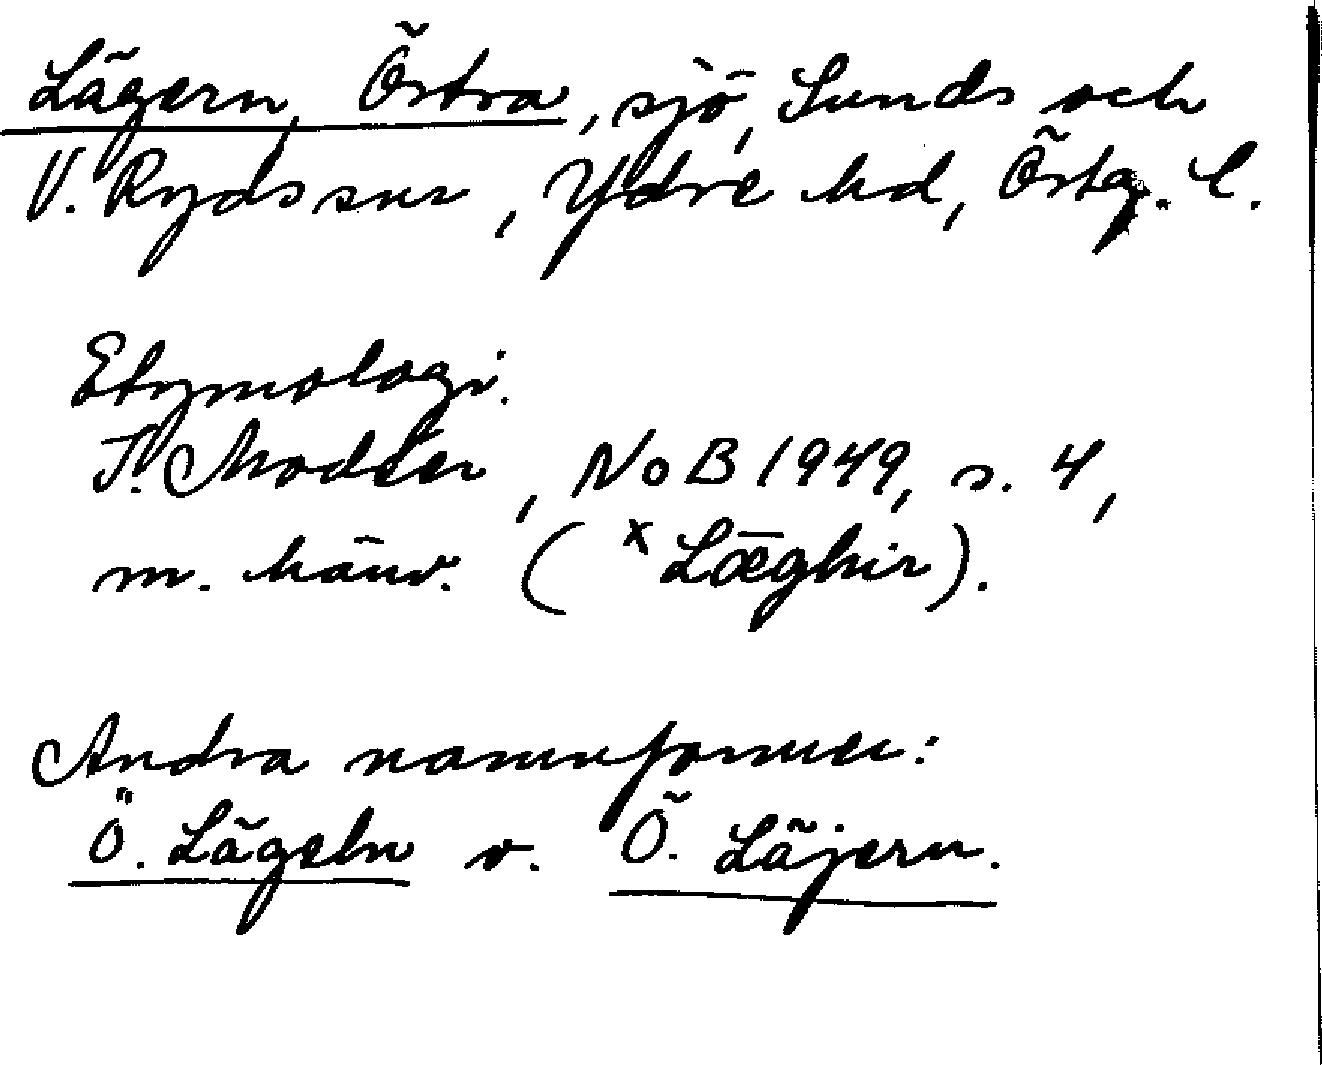 Lägern, Östra, sjö, Sunds och
V. Ryds snr, Ydre hd, Östg. l.
Etymologi.
I. Modéer, NoB 1949, s. 4,
m. hänv. (ˣLǣghir).
Andra namnformer:
Ö. Lägeln o. Ö. Läjern.